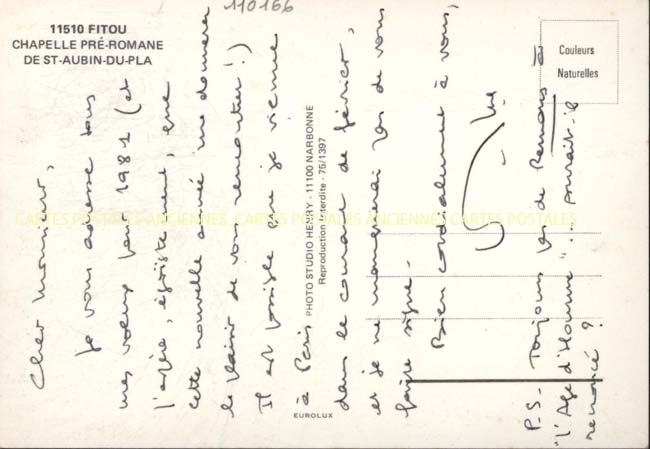 110166
11510 FITOU
CHAPELLE PRÉ-ROMANE
DE ST-AUBIN-DU-PLA
Couleurs
Naturelles
PHOTO STUDIO HENRY - 11100 NARBONNE
Reproduction interdite - 75/1397
EUROLUX
CARTES POSTALES ANCIENNES CARTES POSTALES ANCIENNES CARTES POSTALES
Cher Monsieur,
Je vous adresse tous
mes voeux pour 1981 (et
j'espère, égoïstement, que
cette nouvelle année me donnera
le plaisir de vous rencontrer!)
Il est possible que je vienne
à Paris
dans le courant de février,
et je ne manquerai pas de vous
faire signe.
Bien cordialement à vous,
P.S. Toujours pas de
"l'Age d'Homme"... aurait-il
renoncé ?